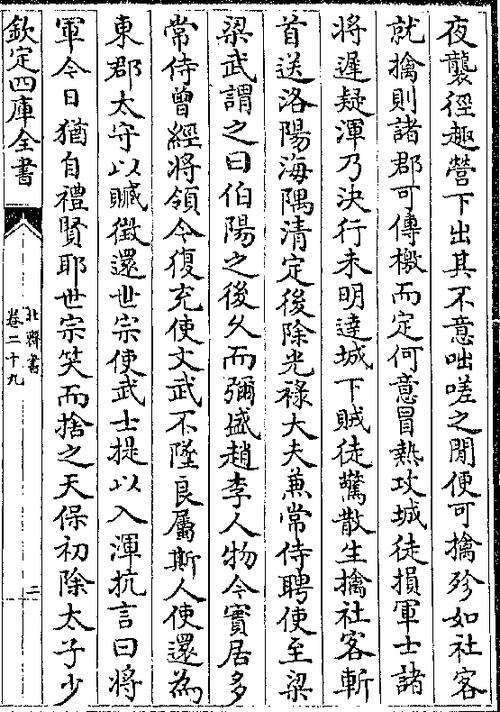 夜襲徑趣營下出其不意咄嗟之閒便可擒殄如社客
就擒則諸郡可傳檄而定何意冒熱攻城徒損軍士諸
將遲疑渾乃決行未明達城下賊徒驚散生擒社客斬
首送洛陽海隅清定後除光祿大夫兼常侍聘使至梁
梁武謂之曰伯陽之後久而彌盛趙李人物今實居多
常侍曾經將領今復充使文武不墜良屬斯人使還為
東郡太守以贓徵還世宗使武士提以入渾抗言曰將
軍今日猶自禮賢耶世宗笑而捨之天保初除太子少
欽定四庫全書
北齊書
卷二十九
二